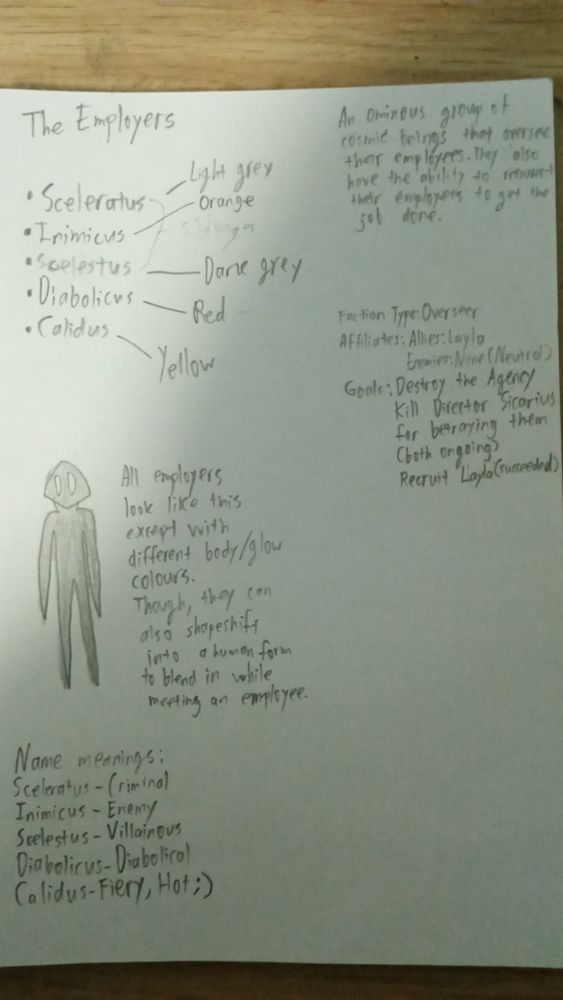 The Employers
• Sceleratus
Light grey
• Inimicus
Orange
• Scelestus
Dark grey
• Diabolicus
Red
• Calidus
Yellow
An ominous group of
cosmic beings that oversee
their employers. They also
have the ability to
their employees to get the
job done.
Faction Type: Overseer
Affiliates: Allies: Layla
Enemies: None (Neutral)
Goals: Destroy the Agency
Kill Director Sicarius
for betraying them
(both ongoing)
Recruit Layla (succeeded)
All employers
look like this
except with
different body/glow
colours.
Though, they can
also shapeshift
into a human form
to blend in while
meeting an employee.
Name meanings:
Sceleratus - Criminal
Inimicus - Enemy
Scelestus - Villainous
Diabolicus - Diabolical
Calidus - Fiery, Hot ;)